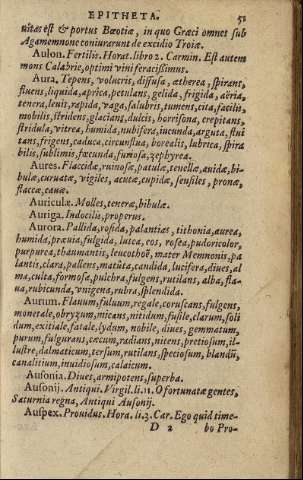 EPITHETA. 51
uitas est & portus Bœotiæ, in quo Græci omnes sub
Agamemnone coniurarunt de excidio Troiæ.
Aulon. Fertilis. Horat. libro 2. Carmin. Est autem
mons Calabriæ, optimi vini feracissimus.
Aura. Tepens, volucris, diffusa, ætherea, spirans,
fluens, liquida, aprica, petulans, gelida, frigida, aëria,
tenera, leuis, rapida, vaga, salubris, tumens, cita, facilis,
mobilis, stridens, glacians, dulcis, horrisona, crepitans,
stridula, vitrea, humida, nubifera, iucunda, arguta, flui
tans, frigens, caduca, circunflua, borealis, lubrica, spira
bilis, sublimis, fœcunda, fumosa, zephyrea.
Aures. Flaccidæ, ruinosæ, patulæ, tenellæ, auidæ, bi-
bulæ, curuatæ, vigiles, acutæ, cupidæ, sensiles, pronæ,
flaccæ, cauæ.
Auriculæ. Molles, teneræ, bibulæ.
Auriga. Indocilis, properus.
Aurora. Pallida, rosida, palantias, tithonia, aurea,
humida, præuia, fulgida, lutea, eos, rosea, pudoricolor,
purpurea, thaumantis, leucothoë, mater Memnonis, pa
lantis, clara, pallens, matuta, candida, lucifera, diues, al
ma, culta, formosa, pulchra, fulgens, rutilans, alba, fla-
ua, rubicunda, vnigena, rubra, splendida.
Aurum. Flauum, fuluum, regale, coruscans, fulgens,
monetale, obryzum, micans, nitidum, fusile, clarum, soli
dum, exitiale, fatale, lydum, nobile, diues, gemmatum,
purum, fulgurans, cæcum, radians, nitens, pretiosum, il-
lustre, dalmaticum, tersum, rutilans, speciosum, blandū,
inuidiosum, calaicum.
Ausonia. Diues, armipotens, superba.
Ausonij. Antiqui. Virgil. li. 11. O fortunatæ gentes,
Saturnia regna, Antiqui Ausonij.
Auspex. Prouidus. Hora. li. 3. Car. Ego quid time-
D 2 bo Pro-